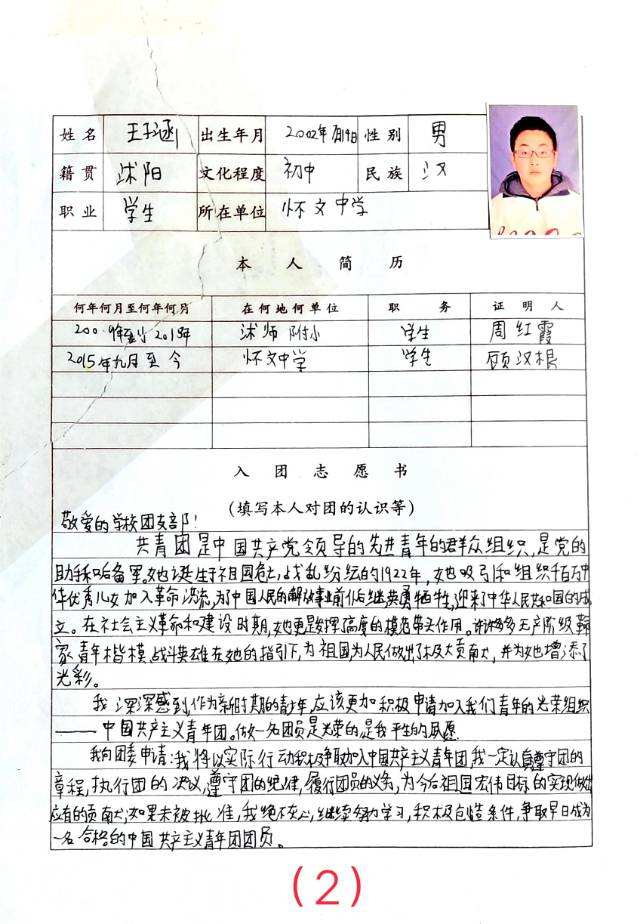 姓名 王子涵 出生年月 2002年 月19日 性别 男
籍贯 沭阳 文化程度 初中 民族 汉
职业 学生 所在单位 怀文中学
本人简历
何年何月至何年何月 在何地何单位 职务 证明人
2009年至 2015年 沭师附小 学生 周红霞
2015年九月至今 怀文中学 学生 顾汉根
入团志愿书
(填写本人对团的认识等)
敬爱的学校团支部!
共青团是中国共产党领导的先进青年的群众组织,是党的
助手和后备军,她诞生于祖国危亡,战乱纷纭的1922年,她吸引和组织千百万中
华优秀儿女加入革命洪流,为中国人民的解放事业前仆后继英勇牺牲,迎来了中华人民共和国的成
立。在社会主义革命和建设时期,她更是发挥高度的模范带头作用。许许多多无产阶级革命
家青年楷模,战斗英雄在她的指引下,为祖国为人民做出了极大贡献,并为她增添了
光彩。
我深深感到,作为新时期的青少年,应该更加积极申请加入我们青年的光荣组织
——中国共产主义青年团。做一名团员是光荣的是我平生的夙愿
我向团委申请:我将以实际行动积极争取加入中国共产主义青年团,我一定认自遵守团的
章程,执行团的决议,遵守团的纪律,履行团员的义务,为今后祖国宏伟目标的实现做出
应有的贡献,如果未被批准,我绝不灰心,继续努力学习,积极创造条件,争取早日成为
一名合格的中国共产主义青年团团员。
(2)